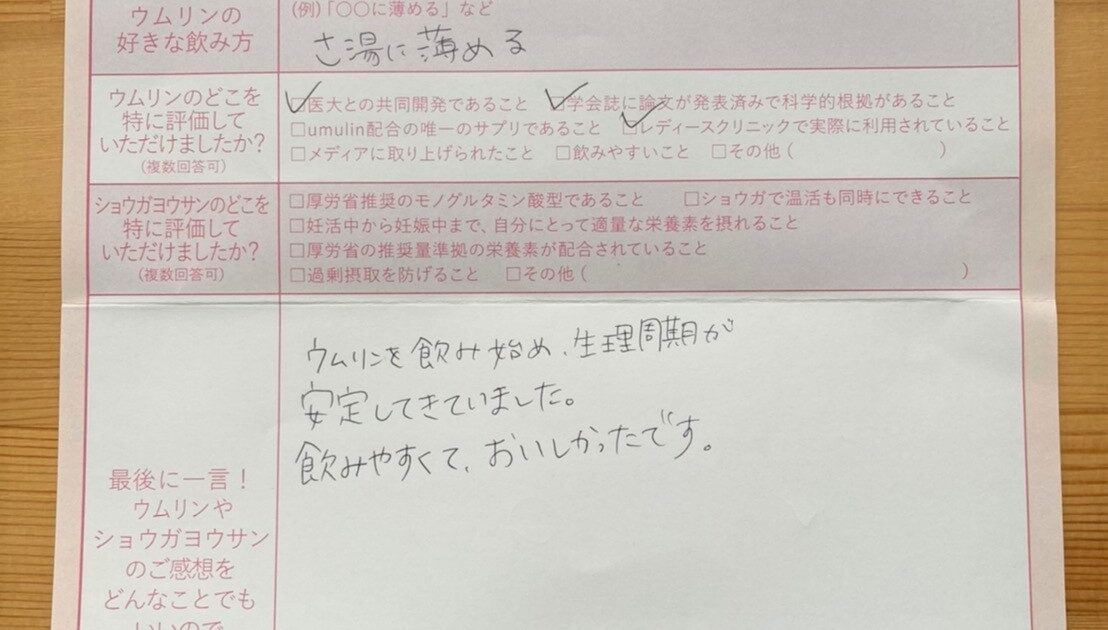 ウムリンの
好きな飲み方
(例)「〇〇に薄める」など
さ湯に薄める
ウムリンのどこを
特に評価して
いただけましたか?
(複数回答可)
☑医大との共同開発であること ☑学会誌に論文が発表済みで科学的根拠があること
□umulin配合の唯一のサプリであること ☑レディースクリニックで実際に利用されていること
□メディアに取り上げられたこと □飲みやすいこと □その他( )
ショウガヨウサンのどこを
特に評価して
いただけましたか?
(複数回答可)
□厚労省推奨のモノグルタミン酸型であること □ショウガで温活も同時にできること
□妊活中から妊娠中まで、自分にとって適量な栄養素を摂れること
□厚労省の推奨量準拠の栄養素が配合されていること
□過剰摂取を防げること □その他( )
最後に一言!
ウムリンや
ショウガヨウサン
のご感想を
どんなことでも
いいので
ウムリンを飲み始め、生理周期が
安定してきていました。
飲みやすくて、おいしかったです。